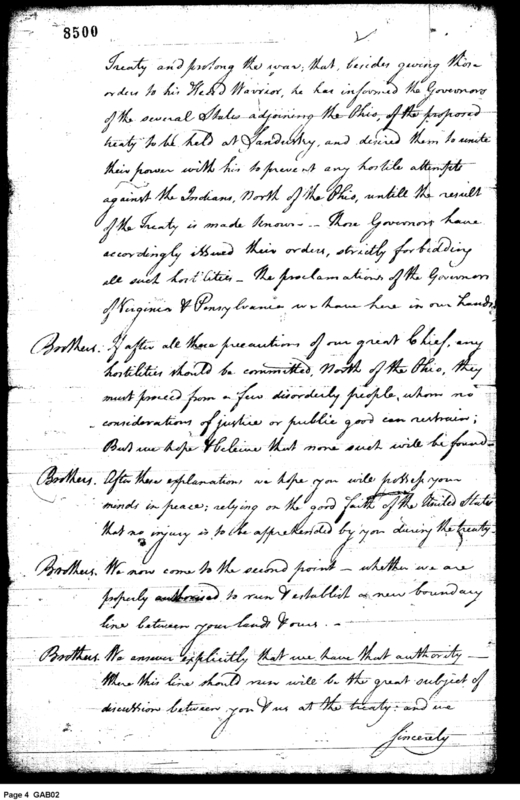 8500
Treaty and prolong the war; that, besides giving those
orders to his Head Warrior, he has informed the Governors
of the several States adjoining the Ohio, of the proposed
treaty to be held at Sandusky, and desired them to unite
their power with his to prevent any hostile attempts
against the Indians, North of the Ohio, untill the result
of the Treaty is made known — Those Governors have
accordingly issued their orders, strictly forbidding
all such hostilities — The proclamations of the Governors
of Virginia & Pensylvania we have here in our hands.
Brothers. If after all these precautions of our great Chief, any
hostilities should be committed, North of the Ohio, they
must proceed from a few disorderly people, whom no
considerations of justice or public good can restrain;
But we hope & beleive that none such will be found—
Brothers. After these explanations we hope you will possess your
minds in peace; relying on the good faith of the United States
that no injury is to be apprehended by you during the treaty—
Brothers. We now come to the second point — whether we are
properly authorised to run & establish a new boundary
line between your lands & ours. —
Brothers. We answer explicitly that we have that authority —
Where this line should run will be the great subject of
discussion between you & us at the treaty: and we
Sincerely
Page 4 GAB02